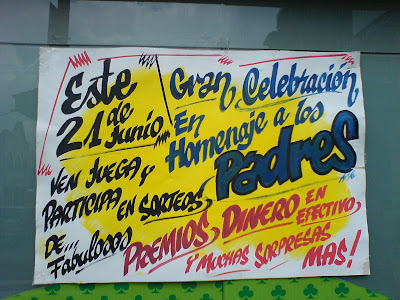 Este
21 de
Junio
VEN JUEGA Y
PARTICIPA
EN SORTEOS
DE... Fabulosos
Gran Celebración
En
Homenaje a los
Padres
PREMIOS, DINERO EN EFECTIVO,
Y MUCHAS SORPRESAS
MAS!